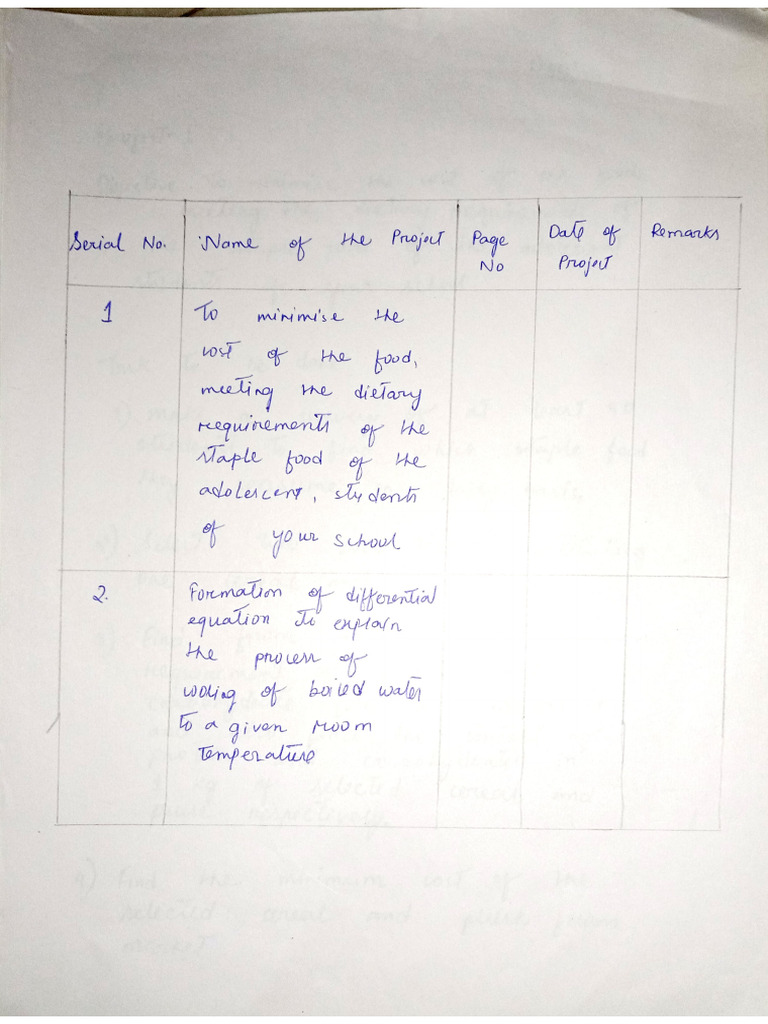 Serial No. Name of the Project Page No Date of Project Remarks
1 To minimise the
cost of the food,
meeting the dietary
requirements of the
staple food of the
adolescent, students
of your school
2. Formation of differential
equation to explain
the process of
cooling of boiled water
to a given room
temperature